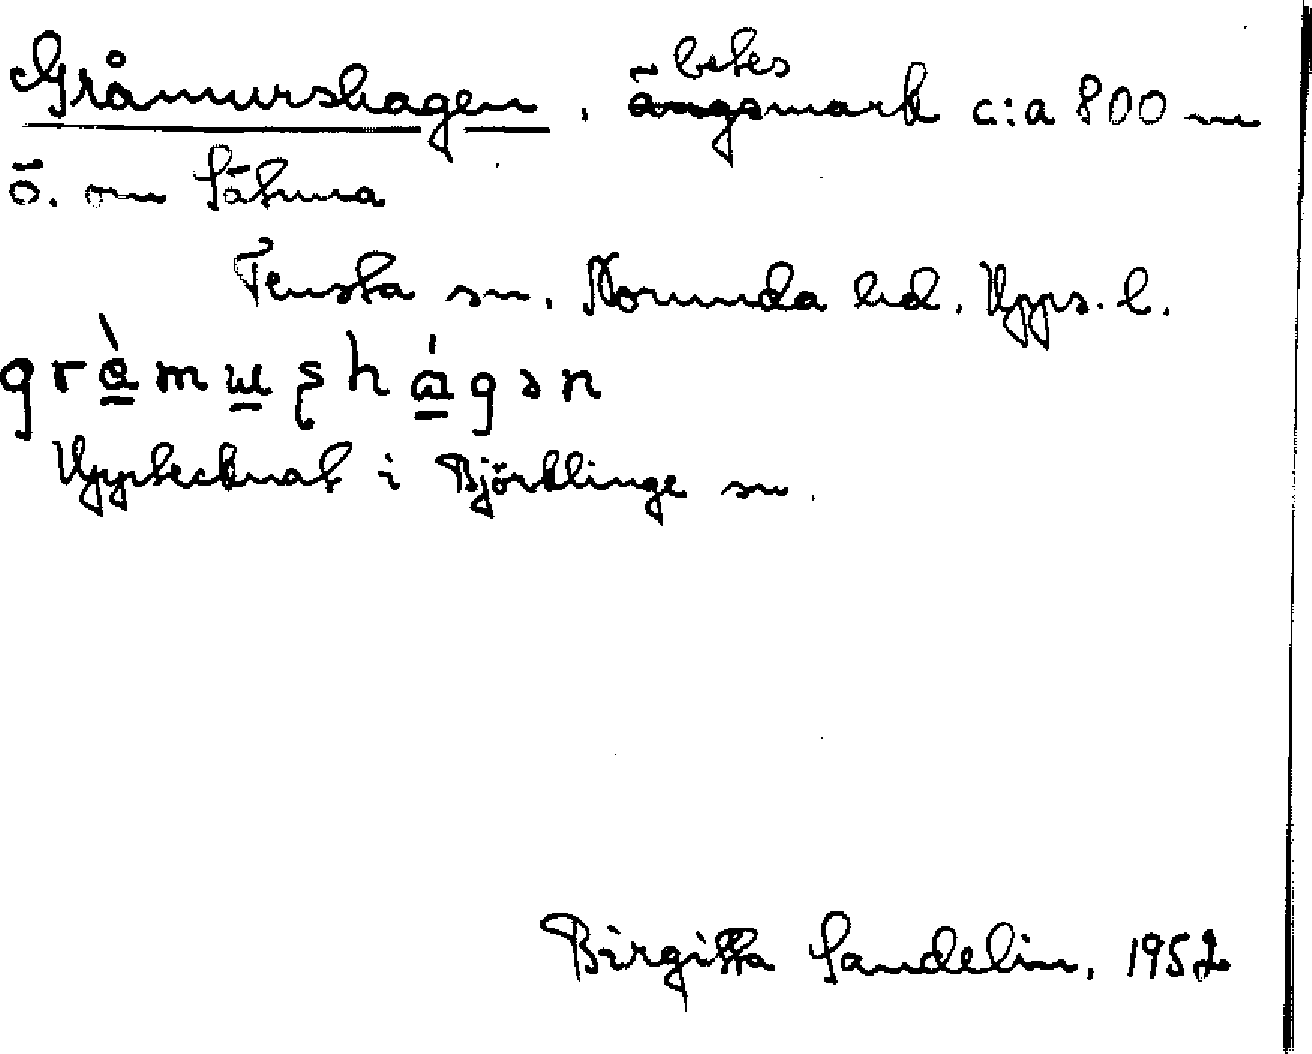 Gråmurshagen, betesmark c:a 800 m
ö. om Sätuna
Tensta sn. Norunda hd. Upps. l.
grà̱mu̱ʂhá̱gən
Upptecknat i Björklinge sn.
Birgitta Sandelin, 1952